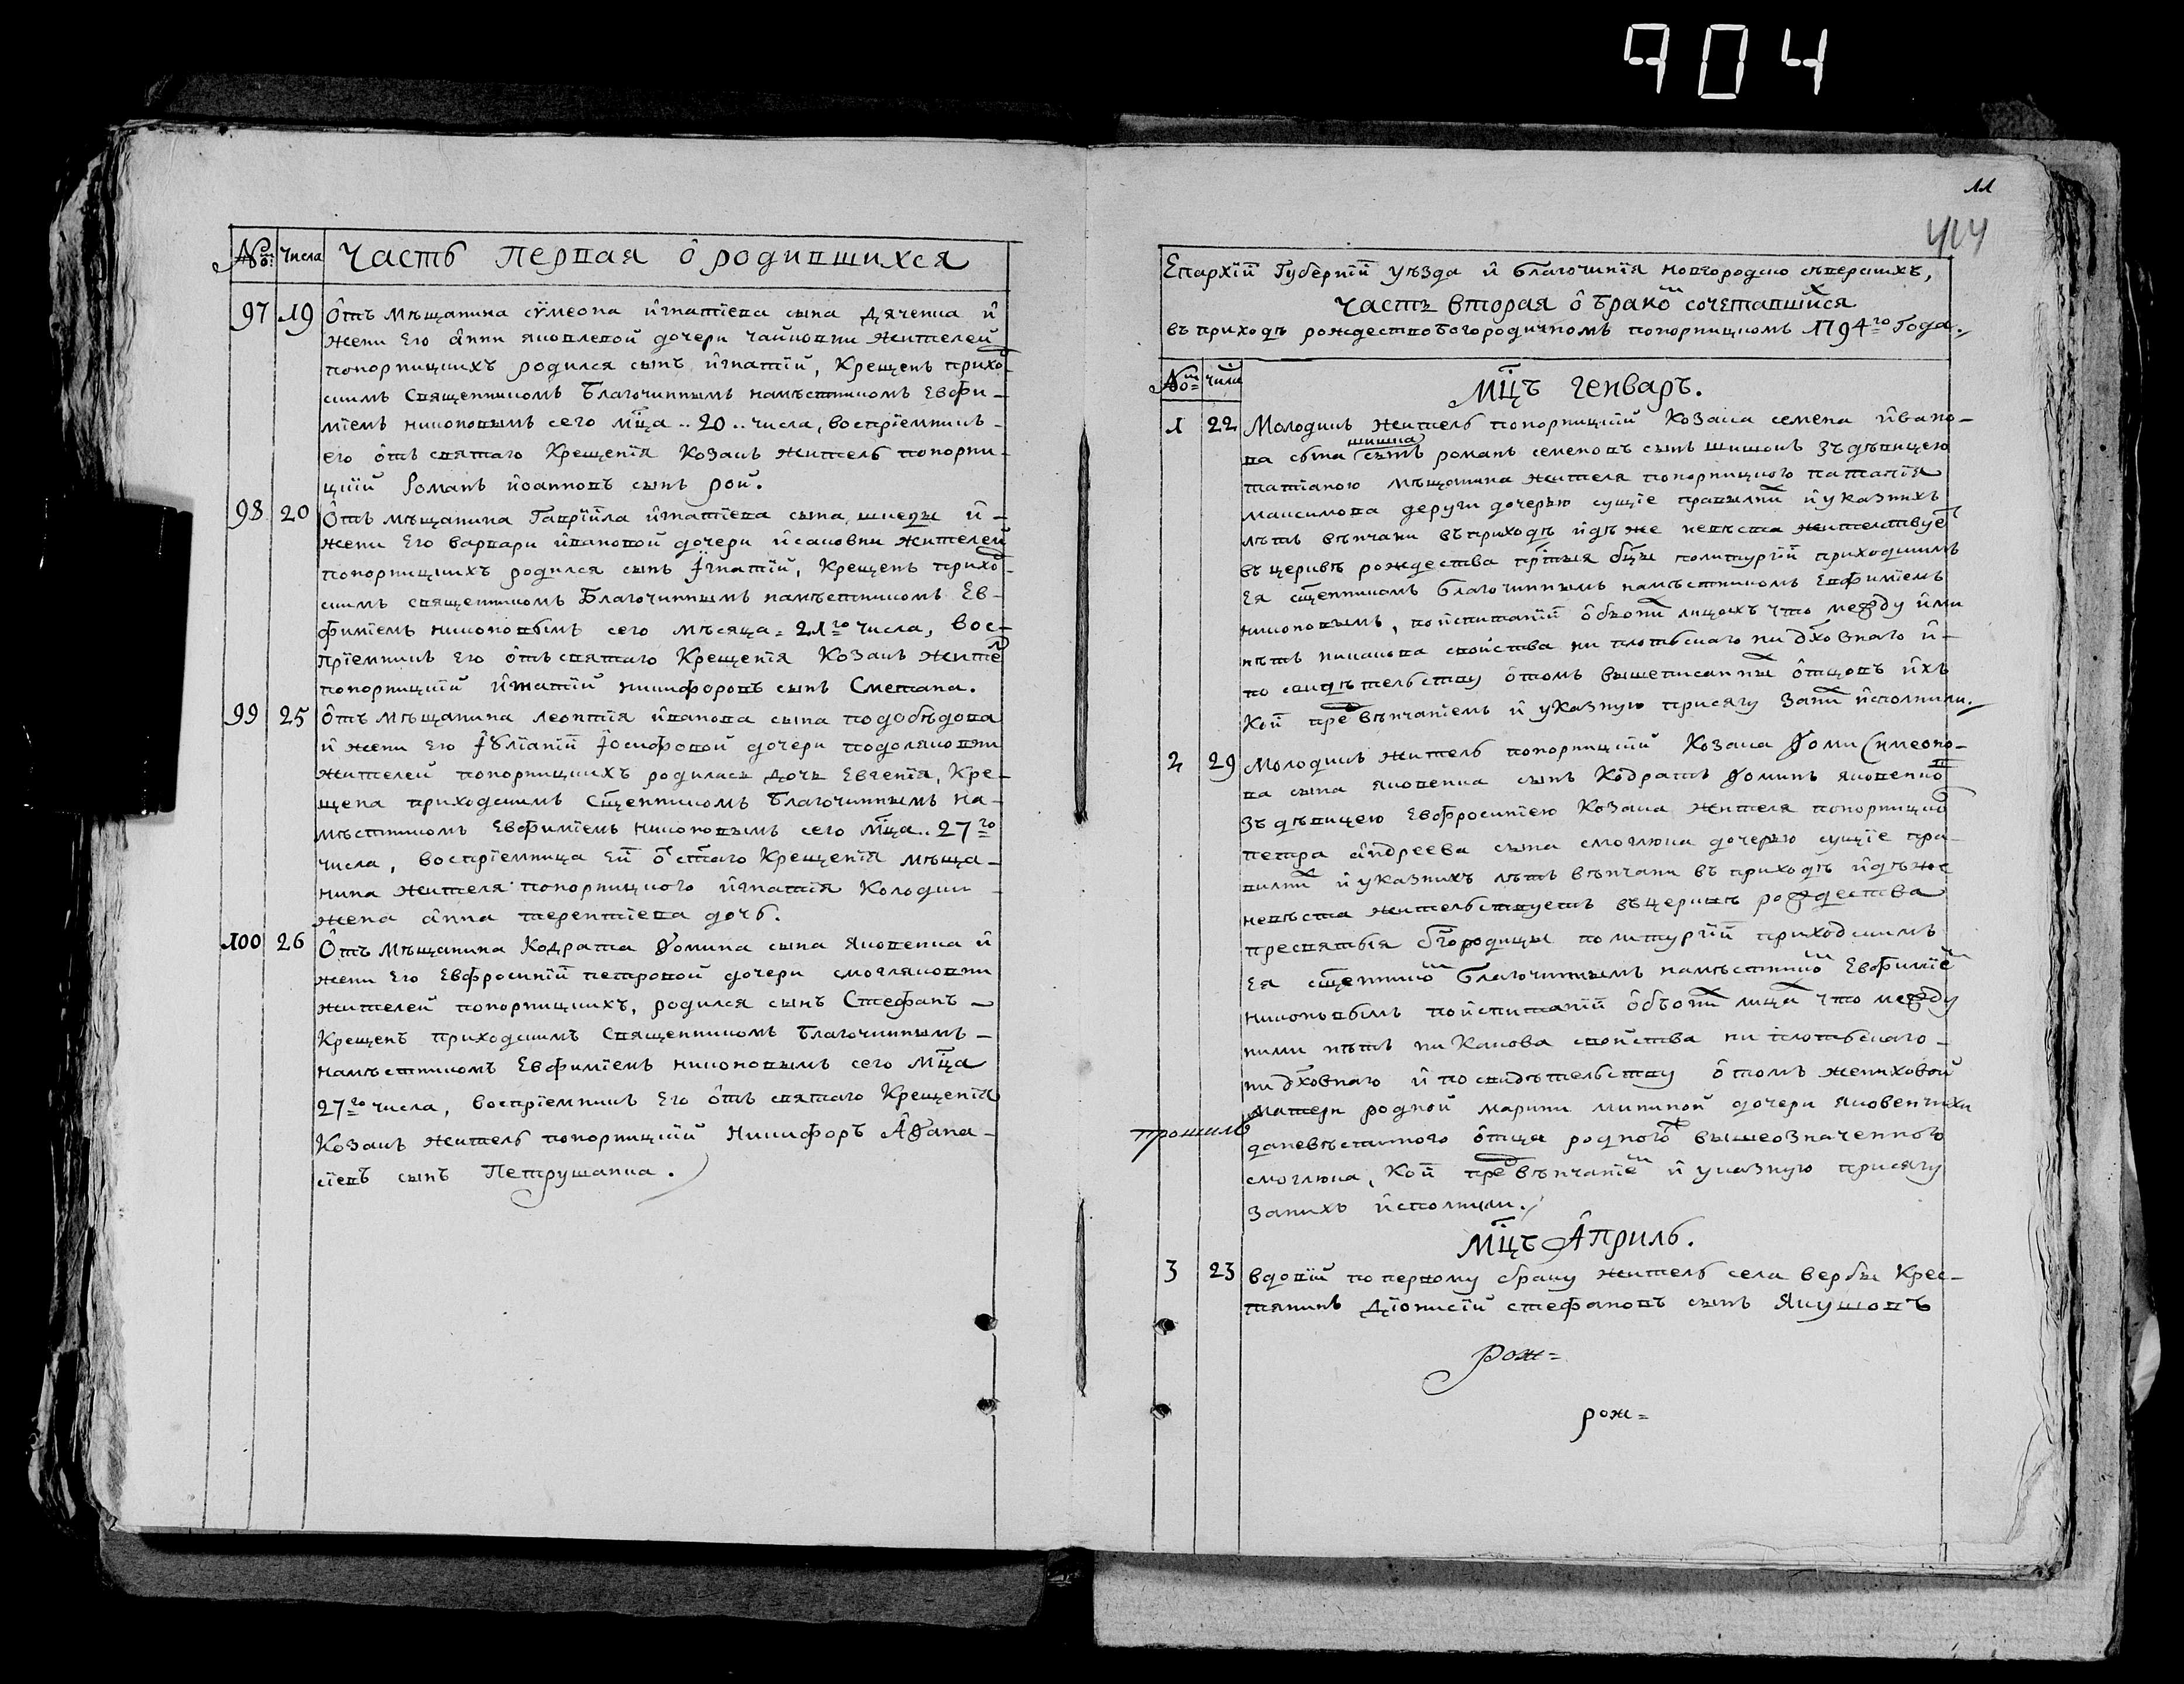 904
11
414
№ числа Часть первая ô родившихся
97 19 Ôтъ мѣщанина сѵмеона игнатіева сына дяченка и
жени Его анни яковлевой дочери чайковни жителей
понорницкихъ родился сынъ игнатій, Крещенъ прихо-
скимъ Священникомъ Благочиннымъ намѣстникомъ Евфи-
міемъ никоновымъ сего мца .. 20 .. числа, воспріемникъ -
его ôтъ святаго Крещенія Козакъ житель понорни-
цкій Романъ иоанновъ сынъ рой.
98 20 Ôтъ мѣщанина Гавріила игнатіева сына шкеды и -
жени Его варвари ивановой дочери исаковни жителей
понорницкихъ родился сынъ Iгнатій, Крещенъ прихо-
скимъ священникомъ Благочиннымъ намѣстникомъ Ев-
фиміемъ никоновымъ сего мѣсяца = 21го числа, вос-
пріемникъ Его ôтъ святаго Крещенія Козакъ жител
понорницкій игнатій никифоровъ сынъ Сметана.
99 25 Ôтъ мѣщанина леонтія иванова сына подобѣдова
и жени Его Iуліаніи Iосифовой дочери подоляковни
жителей понорницкихъ родилась дочь Евгенія, Кре-
щена приходскимъ сщенникомъ Благочиннымъ на-
мѣстникомъ Евфиміемъ никоновымъ сего мца .. 27го
числа, воспріемница Ей ô стаго Крещенія мѣща-
нина жителя понорницкого игнатія Колодки -
жена анна терентіева дочь.
100 26 Ôтъ мѣщанина Кодрата Ѳомина сына яковенка и
жени Его Евфросиніи петровой дочери смогляковни
жителей понорницкихъ, родился сынъ Стефанъ -
Крещенъ приходскимъ Священникомъ Благочиннымъ -
намѣстникомъ Евфиміемъ никоновымъ сего мца
27го числа, воспріемникъ Его ôтъ святаго Крещенія
Козакъ житель понорницкій Никифоръ Аѳана-
сіевъ сынъ Петрушанка.
Епархіи Губерніи уѣзда и благочинія новгородско сѣверскихъ,
Часть вторая ô бракомъ сочетавшихся
въ приходѣ рождествобогородичномъ понорницкомъ 1794го Года.
№ числа
Мцъ Генваръ.
1 22 Молодикъ житель понорницкій Козака семена ивано-
шишка
ва сына сынъ романъ семеновъ сынъ шишокъ зъ дѣвицею
татіаною мѣщанина жителя понорницкого патапія
максимова деруги дочерью сущіе правилнихъ и указнихъ
лѣтъ вѣнчани въ приходѣ идѣ же невѣста жителствует
въ церквѣ рождества пртыя бцы политургіи приходскимъ
Ея сщенникомъ благочиннымъ намѣстникомъ Евфиміемъ
никоновымъ, поиспитаніи ôбъоних лицахъ что между ими
нѣтъ никакова свойства ни плотьскаго ни дховнаго и -
по свидѣтельству ôтомъ вышеписанных ôтцовъ ихъ
Кои пред вѣнчаніемъ и указную присягу заних исполнили.
2 29 Молодикъ житель понорницкій Козака Ѳоми Симеоно-
ва сына яковенка сынъ Кодратъ Ѳоминъ яковенко
зъ дѣвицею Евфросиніею Козака жителя понорницког
петра андреева сына смоглюка дочерью сущіе пра-
вилних и указнихъ лѣтъ вѣнчани въ приходѣ идѣже
невѣста жительствуетъ въ церквѣ рождества
пресвятыя бгородицы политургіи приходскимъ
Ея сщенником Благочиннымъ намѣстником Евфиміем
никоновымъ поиспитаніи ôбъоних лицах что между
ними нѣтъ никакова свойства ни плотьскаго -
ни дховнаго и по свидѣтельству ôтомъ жениховой
матери родной марини мининой дочери яковенчихи
прошилъ
даневѣстиного ôтца родного вышеозначенного
смоглюка, Кои пред вѣнчаніем и указную присягу
занихъ исполнили.
Мцъ Априль.
3 23 вдовій по первому браку житель села вербы Крес-
тянинъ діонисій стефановъ сынъ Якушовъ
рож=
рож=